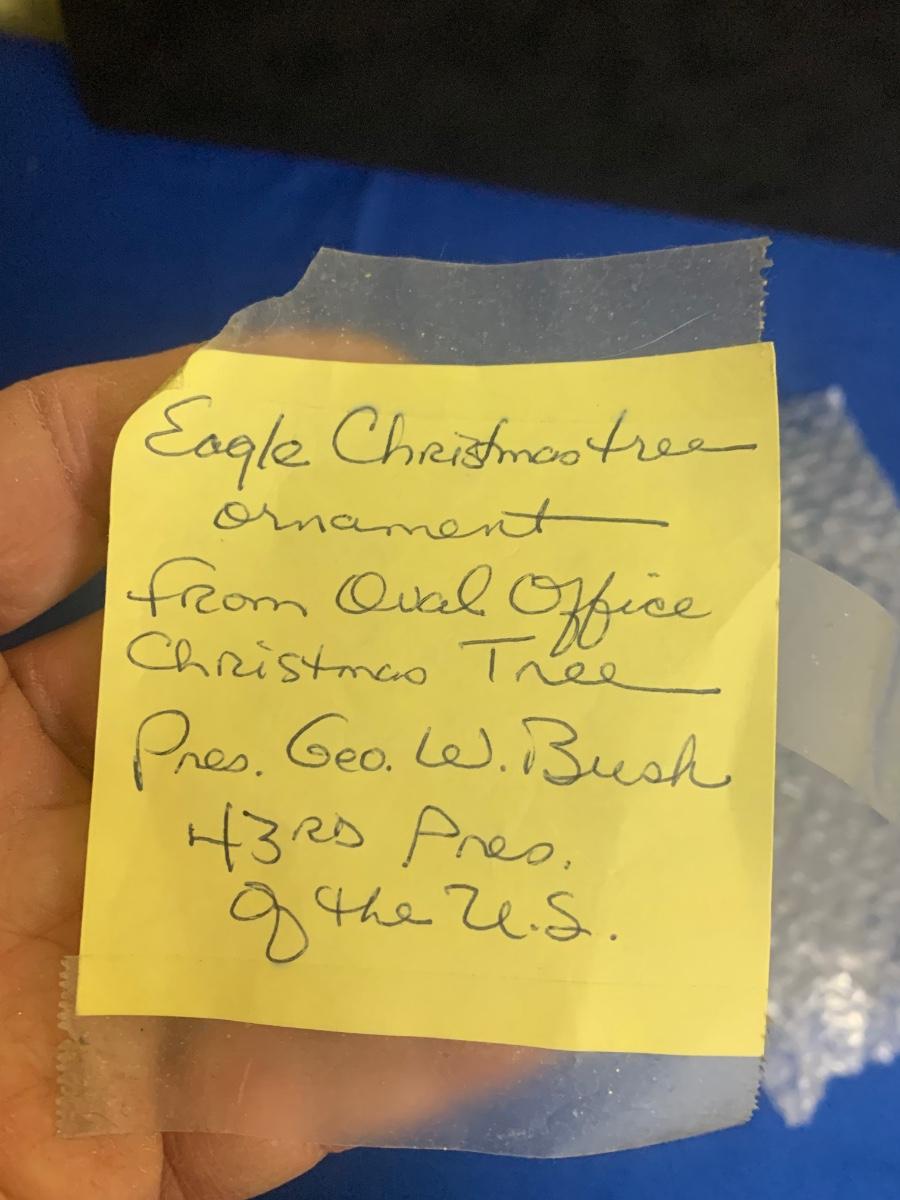 Eagle Christmas tree
ornament
from Oval Office
Christmas Tree
Pres. Geo. W. Bush
43RD Pres.
of the U.S.